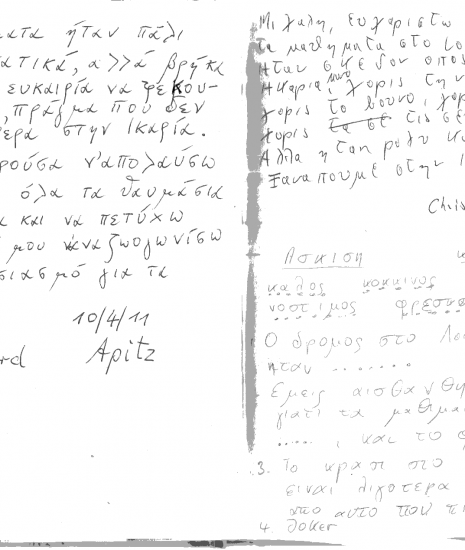 ατα ήταν πάλι
ατικά, αλλά βρήκα
ευκαιρία να ξεκου-
, πράγμα που δεν
ερα στην Ικαρία.
ρούσα ν'απολαύσω
όλα τα θαυμάσια
α και να πετύχω
μου να αναζωογονίσω
σιασμό για τα
10/4/11
rd Apitz
Μιχαλη, ευχαριστω
τα μαθηματα στο
Ηταν σχεδον οπως
Ικαρια, χορις την
χορις το βουνο, χορ
χορις τα σε τις
Αλλα ηταν πολυ
Ξαναπουμε στην Ι
Chris
Ασκιση
καλος κοκκινος
νοστιμος φρεσκ
Ο δρομος στο
ηταν .......
Εμεις αισθανθη
γιατι τα μαθημα
....., και το
3. Το κρασι στο
ειναι λιγοτερο
απο αυτο που πι
4. Joker